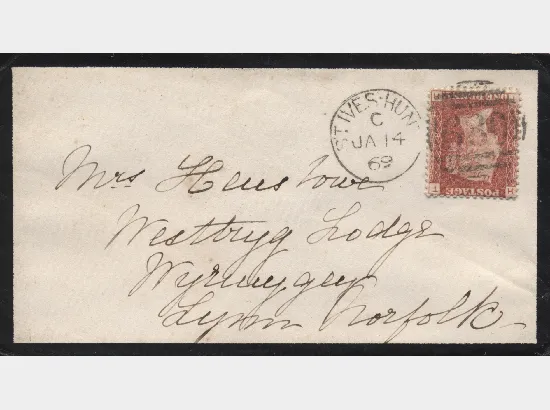 ST IVES-HUN
C
JA 14
69
POSTAGE
Mrs Henslowe
Lodge
Lynn Norfolk